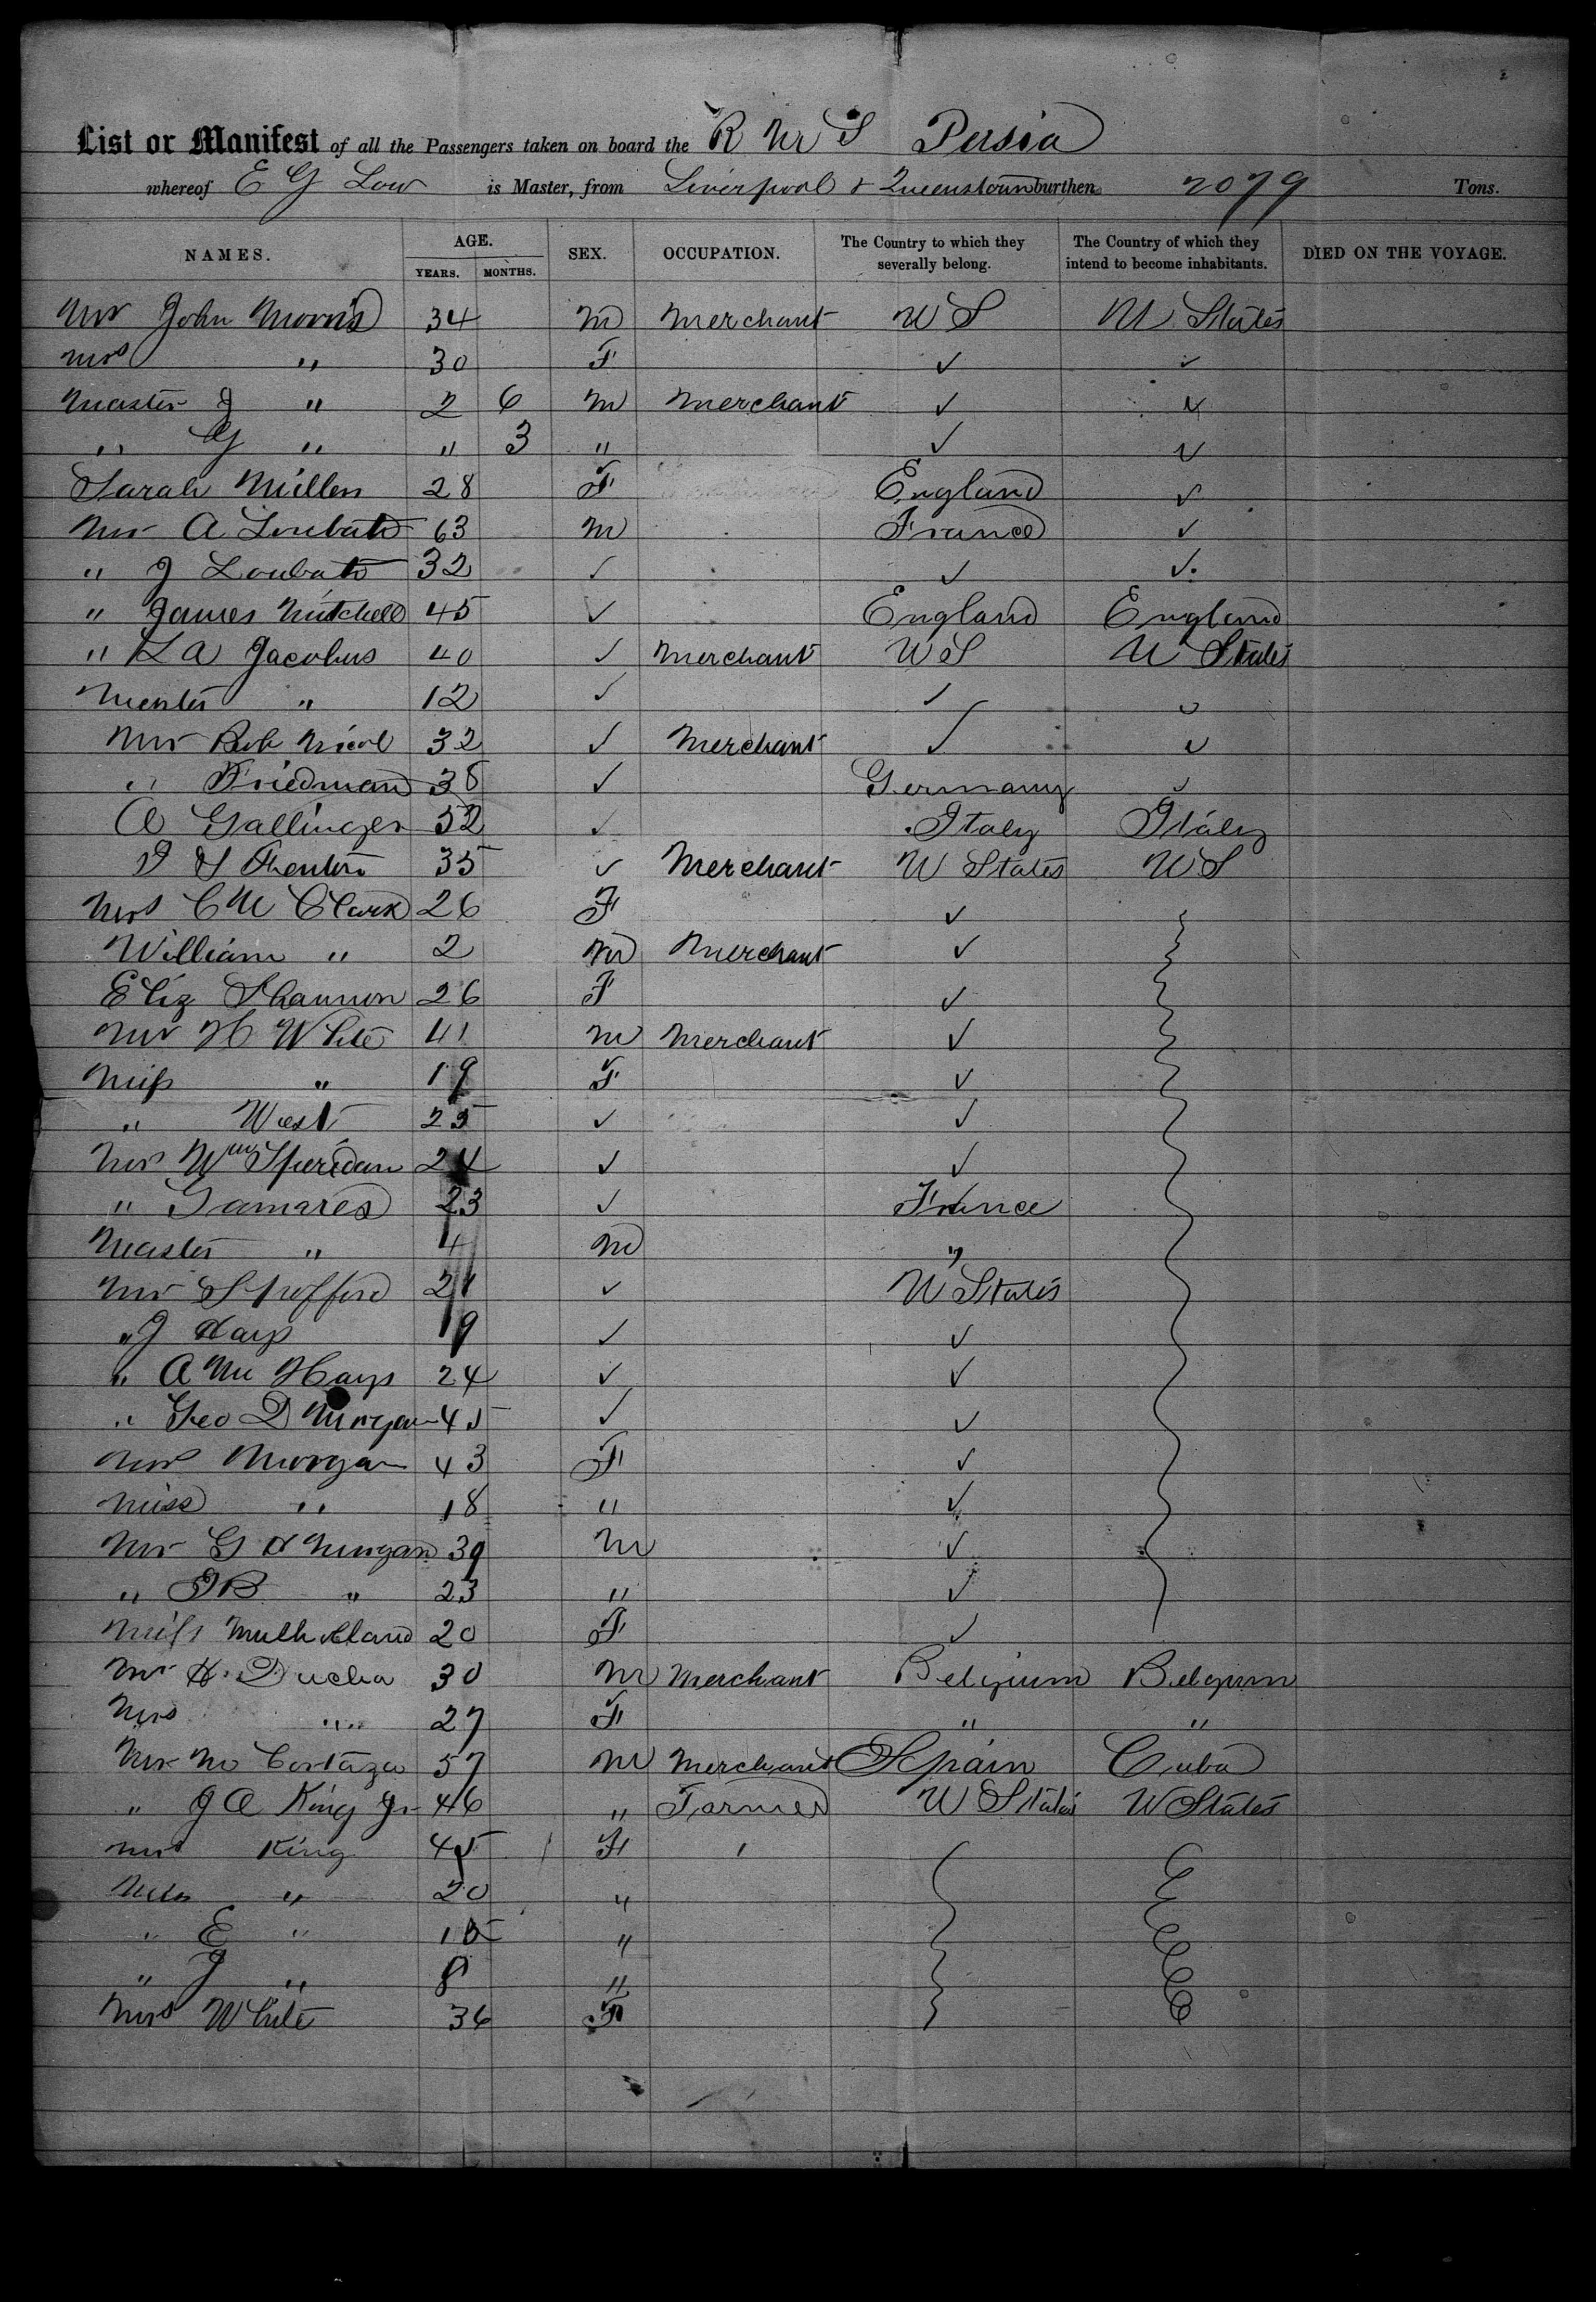 List or Manifest of all the Passengers taken on board the R M S Persia
whereof E G Low is Master, from Liverpool & Queenstown burthen 2079 Tons.
NAMES. AGE. YEARS. MONTHS. SEX. OCCUPATION. The Country to which they severally belong. The Country of which they intend to become inhabitants. DIED ON THE VOYAGE.
Mr John Morris 34 M Merchant U S U States
Mrs " 30 F ✓ ✓
Master J " 2 6 M Merchant ✓ ✓
" G " " 3 " ✓ ✓
Sarah Millen 28 F England ✓
Mr A Loubat 63 M France ✓
" J Loubat 32 ✓ ✓ ✓
" James Mitchell 45 ✓ England England
" L A Jacobus 40 ✓ Merchant U S U States
Master " 12 ✓ ✓ ✓
Mr Nicol 32 ✓ Merchant ✓ ✓
" Friedman 38 ✓ Germany ✓
A Gallinger 52 ✓ Italy Italy
S Fenton 35 ✓ Merchant U States U S
Mrs C M Clark 26 F ✓
William " 2 M Merchant ✓
Eliz Shannon 26 F ✓
Mr H White 41 M Merchant ✓
Miss " 19 F ✓
" West 25 ✓ ✓
Mrs Wm Speridan 24 ✓ ✓
" Tamares 23 ✓ France
Master " 4 M "
Mr Spofford 21 ✓ U States
" J Hays 19 ✓ ✓
" A Mc Hays 24 ✓ ✓
" Geo D Morgan 45 ✓ ✓
Mrs Morgan 43 F ✓
Miss " 18 " ✓
Mr G H Morgan 39 M ✓
" J B " 23 " ✓
Miss Mulholland 20 F ✓
Mr H. Ducha 30 M Merchant Belgium Belgium
Mrs " 27 F " "
Mr M 57 M Merchant Spain Cuba
" J A King Jr 46 " Farmer U States U States
Mrs King 45 F
Miss " 20 "
" E " 15 "
" J " 8 "
Mrs White 36 F